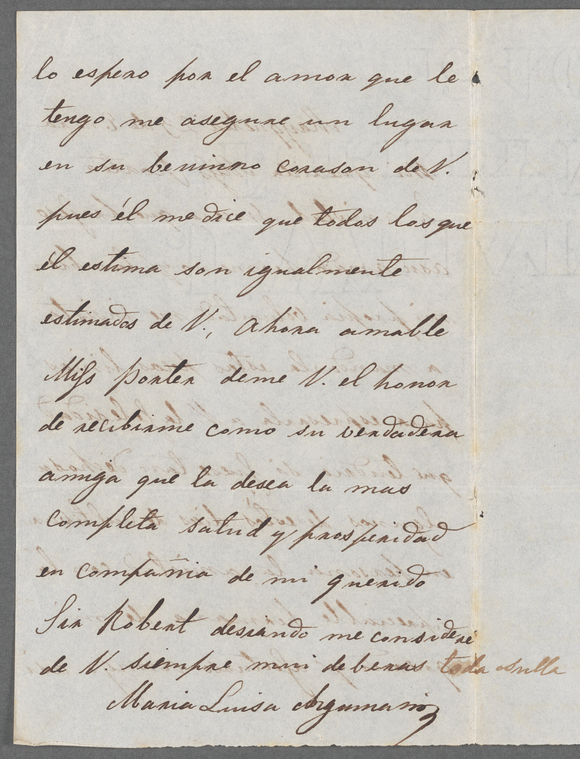 lo espero por el amor que le
tengo me asegure un lugar
en su beninno corason de V.
pues él me dice que todos los que
él estima son igualmente
estimados de V., Ahora amable
Miss Porter deme V. el honor
de recibirme como su verdadera
amiga que la desea la mas
completa salud y prosperidad
en compañia de mi querido
Sir Robert deseando me considere
de V. siempre mui de beras toda sulla
Maria Luisa